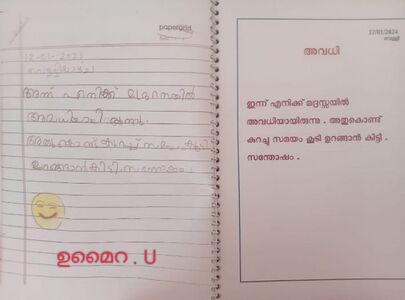 papergrid
12-01-2023
വെള്ളിയാഴ്ച
ഇന്ന് എനിക്ക് മദ്രസയിൽ
അവധിയായിരുന്നു.
അതുകൊണ്ട് കുറച്ച് സമയം കൂടി
ഉറങ്ങാൻ കിട്ടി. സന്തോഷം.
ഉമൈറ . U
12/01/2024
വെള്ളി
അവധി
ഇന്ന് എനിക്ക് മദ്രസ്സയിൽ
അവധിയായിരുന്നു . അതുകൊണ്ട്
കുറച്ചു സമയം കൂടി ഉറങ്ങാൻ കിട്ടി .
സന്തോഷം .